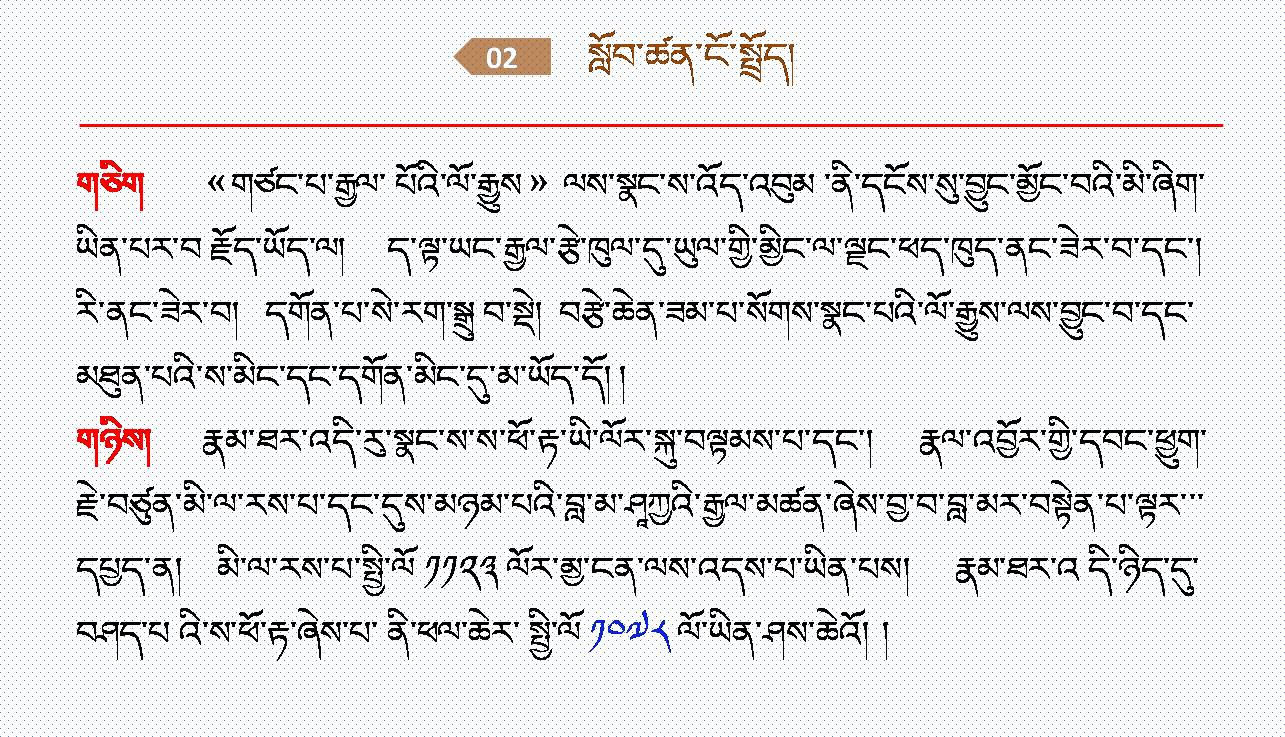 02 སློབ་ཚན་ངོ་སྤྲོད།
གཅིག «གཙང་པ་རྒྱལ་ པོའི་ལོ་རྒྱུས» ལས་སྣང་ས་འོད་འབུམ་ནི་དངོས་སུ་བྱུང་མྱོང་བའི་མི་ཞིག་
ཡིན་པར་བ རྗོད་ཡོད་ལ། ད་ལྟ་ཡང་རྒྱལ་རྩེ་ཁུལ་དུ་ཡུལ་གྱི་མྱིང་ལ་ལྗང་ཕད་ཁུད་ནང་ཟེར་བ་དང་།
རི་ནང་ཟེར་བ། དགོན་པ་སེ་རག་སྨྲ བ་སྡེ། བརྩེ་ཆེན་ཟམ་པ་སོགས་སྣང་པའི་ལོ་རྒྱུས་ལས་བྱུང་བ་དང་
མཐུན་པའི་ས་མིང་དང་དགོན་མིང་དུ་མ་ཡོད་དོ། །
གཉིས། རྣམ་ཐར་འདི་རུ་སྣང་ས་ས་ཕོ་རྟ་ཡི་ལོར་སྐུ་བལྟམས་པ་དང་། རྣལ་འབྱོར་གྱི་དབང་ཕྱུག་
རྗེ་བཙུན་མི་ལ་རས་པ་དང་དུས་མཉམ་པའི་བླ་མ་ཤཱཀྱའི་རྒྱལ་མཚན་ཞེས་བྱ་བ་བླ་མར་བསྟེན་པ་ལྟར་་་
དཔྱད་ན། མི་ལ་རས་པ་སྤྱི་ལོ ༡༡༢༣ ལོར་མྱ་ངན་ལས་འདས་པ་ཡིན་པས། རྣམ་ཐར་འ དི་ཉིད་དུ་
བཤད་པ འི་ས་ཕོ་རྟ་ཞེས་པ་ ནི་ཕལ་ཆེར་ སྤྱི་ལོ ༡༠༧༨ ལོ་ཡིན་ཤས་ཆེའོ། །